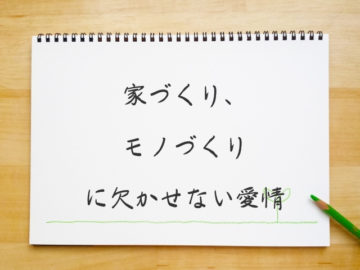 家づくり、
モノづくり
に欠かせない愛情